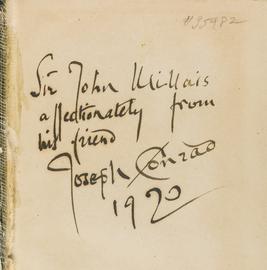 #35982
Sir John Millais
affectionately from
his friend
Joseph Conrad
1920